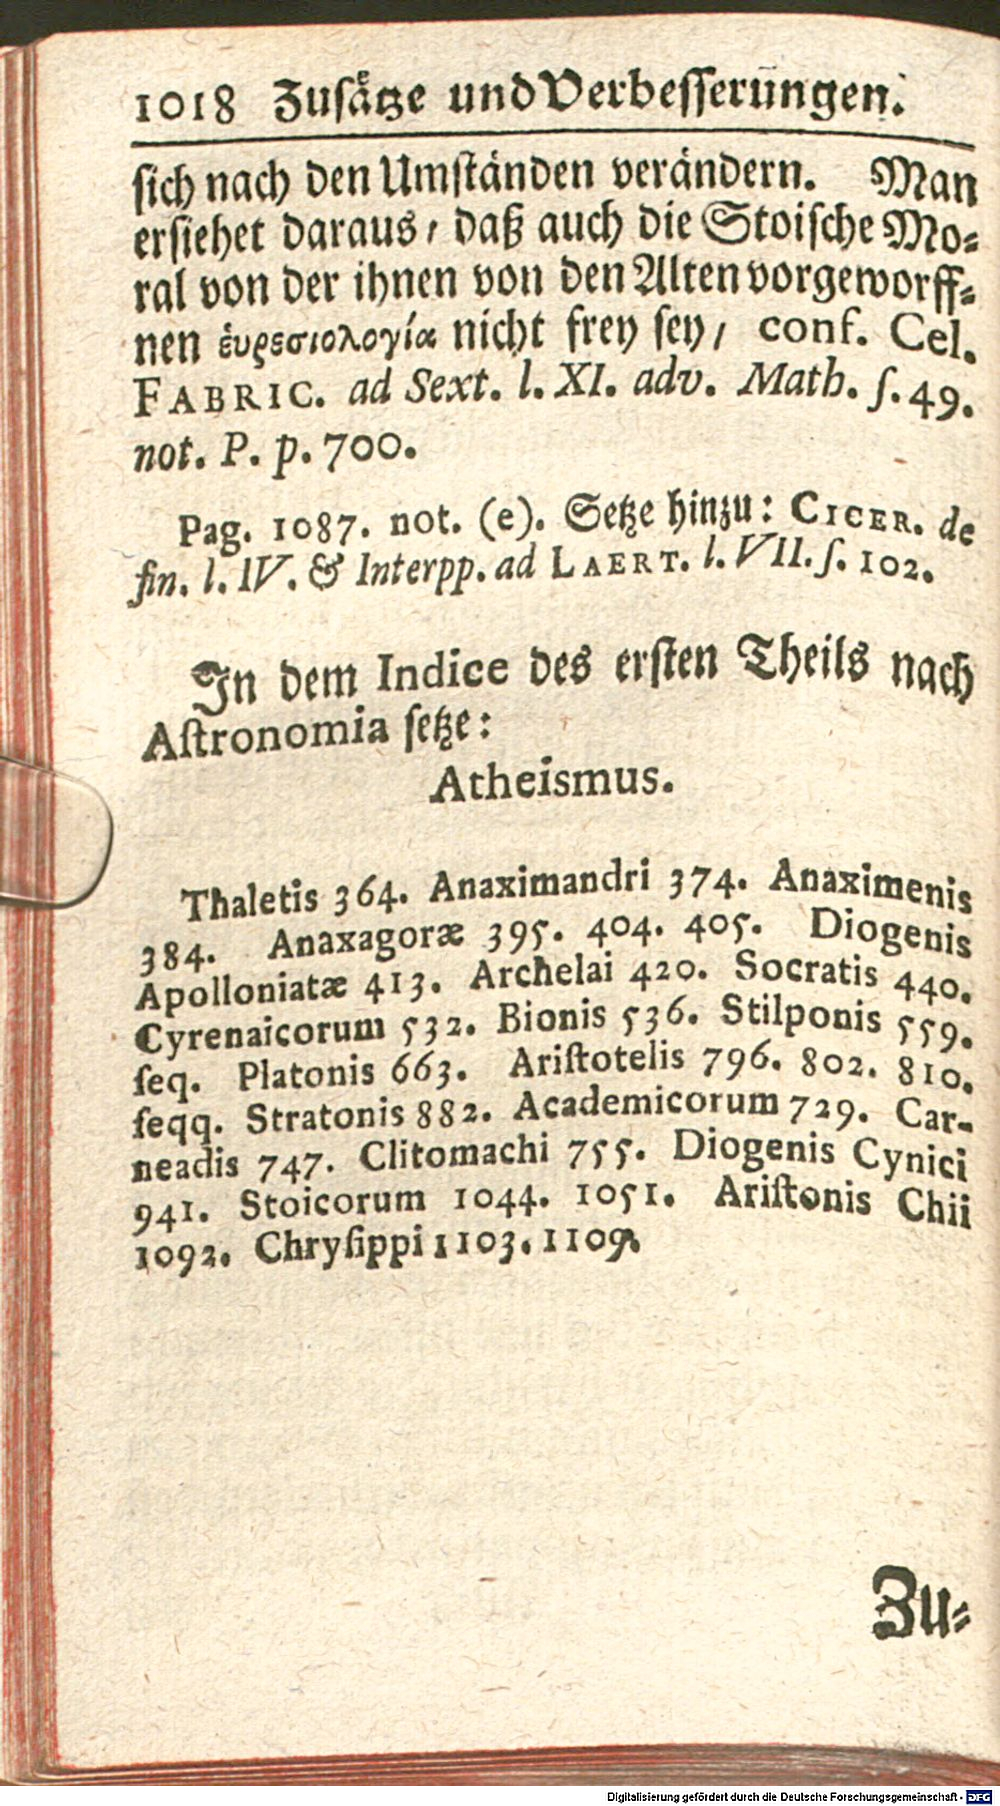 1018 Zusätze und Verbesserungen.
sich nach den Umständen verändern. Man
ersiehet daraus, daß auch die Stoische Mo-
ral von der ihnen von den Alten vorgeworff-
nen ἑυρεσιολογία nicht frey sey, conf. Cel.
FABRIC. ad Sext. l. XI. adv. Math. ſ. 49.
not. P. p. 700.
Pag. 1087. not. (e). Setze hinzu: CICER. de
fin. l. IV. & Interpp. ad LAERT. l. VII. ſ. 102.
In dem Indice des ersten Theils nach
Aſtronomia setze:
Atheismus.
Thaletis 364. Anaximandri 374. Anaximenis
384. Anaxagoræ 395. 404. 405. Diogenis
Apolloniatæ 413. Archelai 420. Socratis 440.
Cyrenaicorum 532. Bionis 536. Stilponis 559.
ſeq. Platonis 663. Ariſtotelis 796. 802. 810.
ſeqq. Stratonis 882. Academicorum 729. Car-
neadis 747. Clitomachi 755. Diogenis Cynici
941. Stoicorum 1044. 1051. Ariſtonis Chii
1092. Chryſippi 1103. 1109.
Zu-
Digitalisierung gefördert durch die Deutsche Forschungsgemeinschaft - DFG